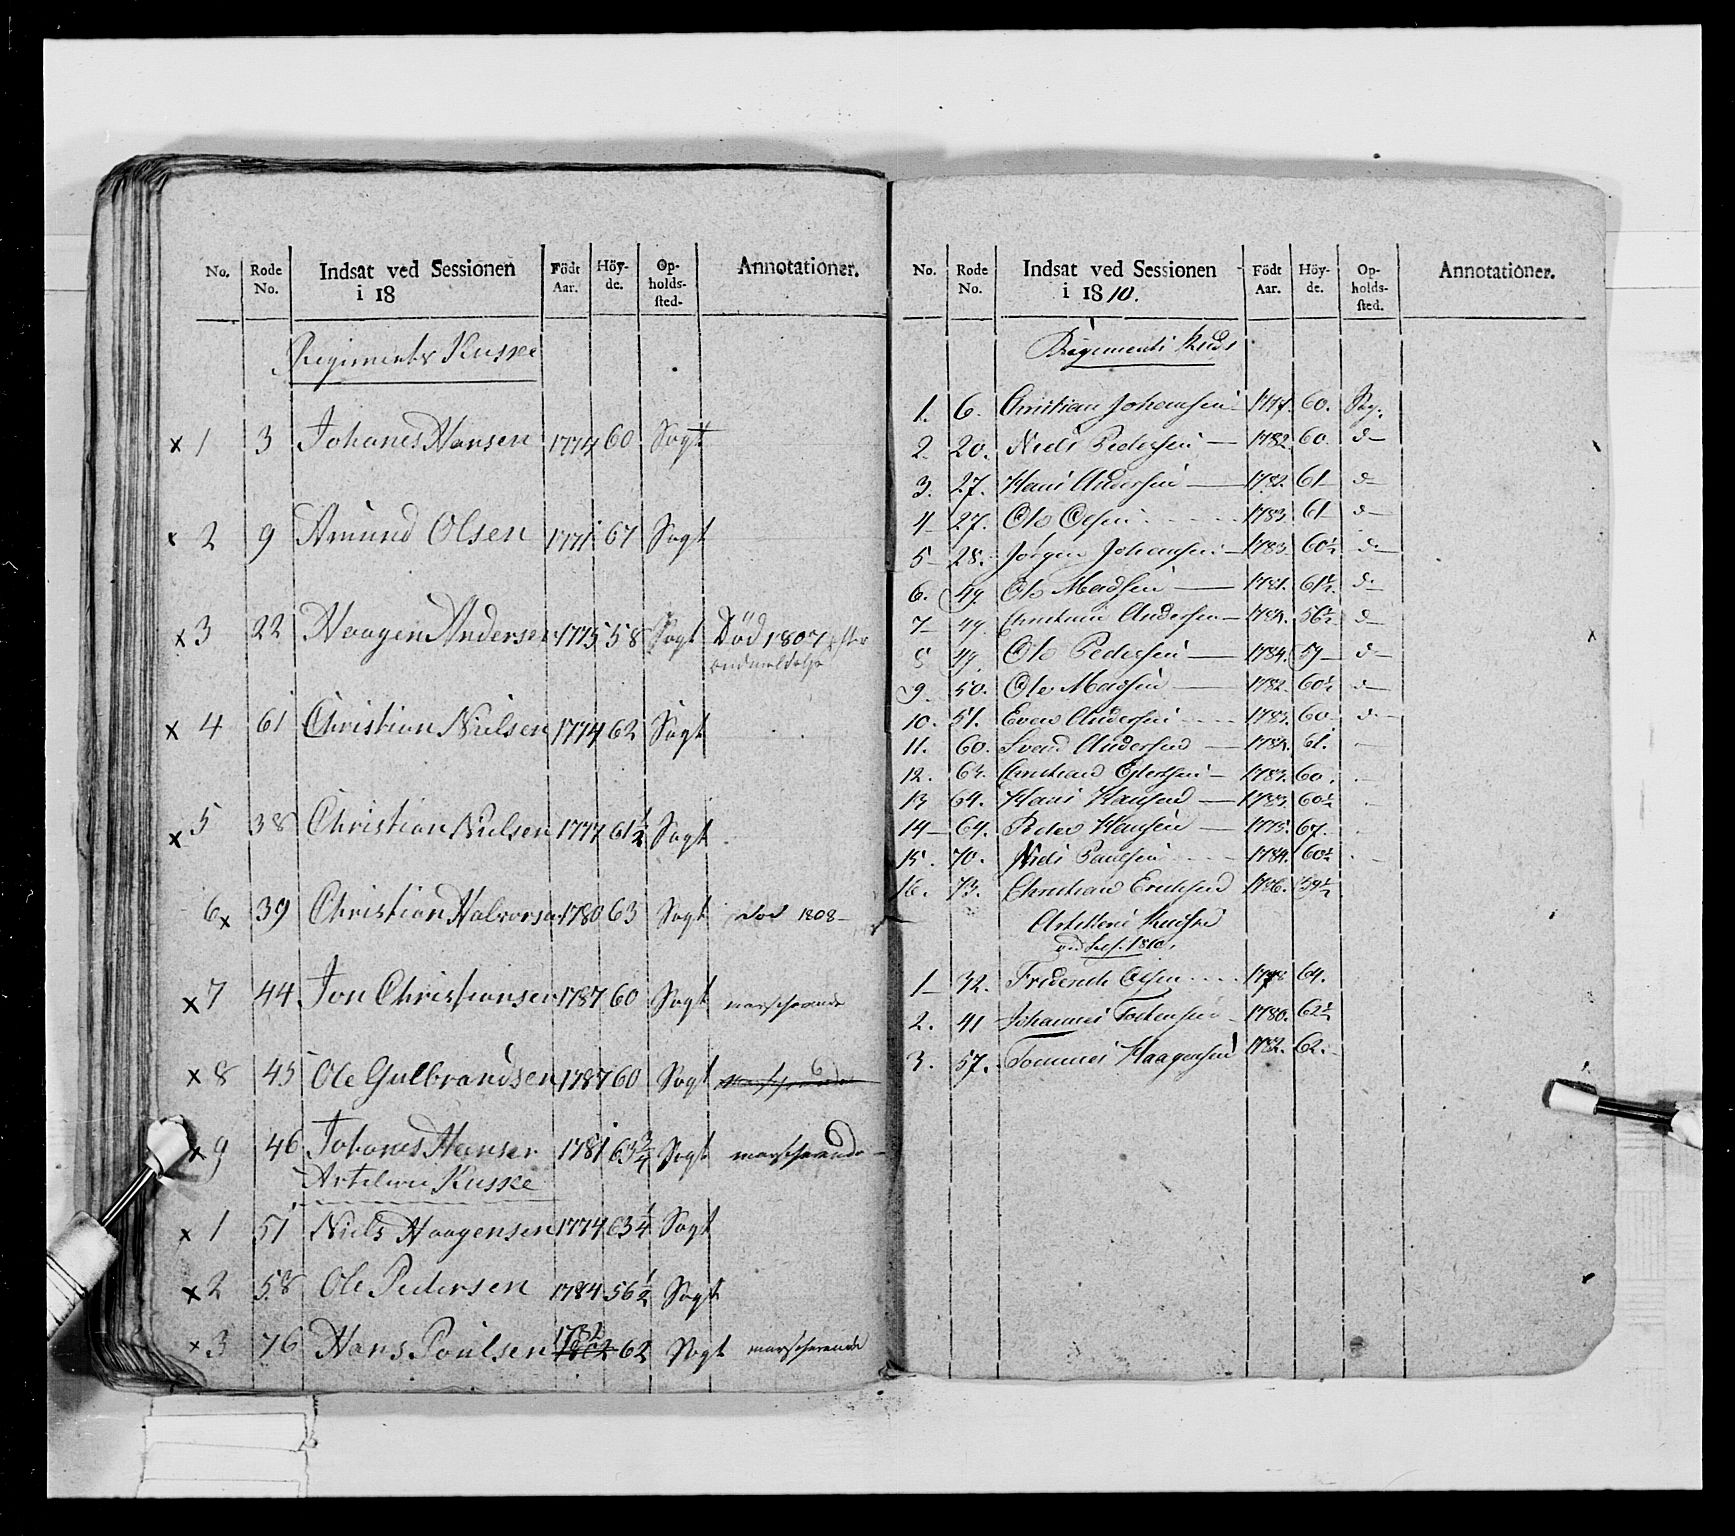 No. Rode No. Indsat ved Sessionen i 18 Födt Aar. Höy- de. Op- holds- sted. Annotationer.
Regiments Kuske
x 1 3 Johanes Hansen 1774 60 Sogt
x 2 9 Amund Olsen 1771 67 Sogt
x 3 22 Haagen Andersen 1775 58 Sogt Död 1807 efter
x 4 61 Christian Nielsen 1774 62 Sogt
x 5 38 Christian Nielsen 1777 61½ Sogt
6 x 39 Christian Halvorsen 1780 63 Sogt död 1808
x 7 44 Jon Christiansen 1787 60 Sogt marscherende
x 8 45 Ole Gulbrandsen 1787 60 Sogt marscherende
x 9 46 Johanes Hansen 1781 63¾ Sogt marscherende
Artileri Kuske
x 1 51 Niels Haagensen 1774 63¼ Sogt
x 2 58 Ole Pedersen 1784 56½ Sogt
x 3 76 Hans Poulsen 1782 62 Sogt marscherende
No. Rode No. Indsat ved Sessionen i 1810. Födt Aar. Höy- de. Op- holds- sted. Annotationer.
Regiments Kuds
1. 6. Christian Johansen 60. Sog.
2. 20. Niels Pedersen 1782 60. d
3. 27. Hans Andersen 1782. 61 d
4 27. Ole Olsen 1783. 61 d
5 28. Jörgen Johansen 1783. 60½ d
6. 49. Ole Madsen 1781. 61½ d
7 49. Christian Andersen 56½ d
8 49. Ole Pedersen 1784. 59 d
9. 50. Ole Madsen 1782. 60½ d
10. 51. Even Andersen 1783. 60 d
11. 60. Svend Andersen 61.
12. 63. Christian Eilertsen 1783. 60.
13 64. Hans Hansen 1783. 60½
14 64. Peder Hansen 1775. 67.
15. 70. Niels Paulsen 1784. 60½
16. 73. Christian Ericksen 1786. 59½
Artilleri Kudske
ved Ses. 1810.
1 32. Friderich Olsen 1778 64.
2. 41 Johannes 1780. 62½
3. 57. Tommes Haagensen 1782. 62.